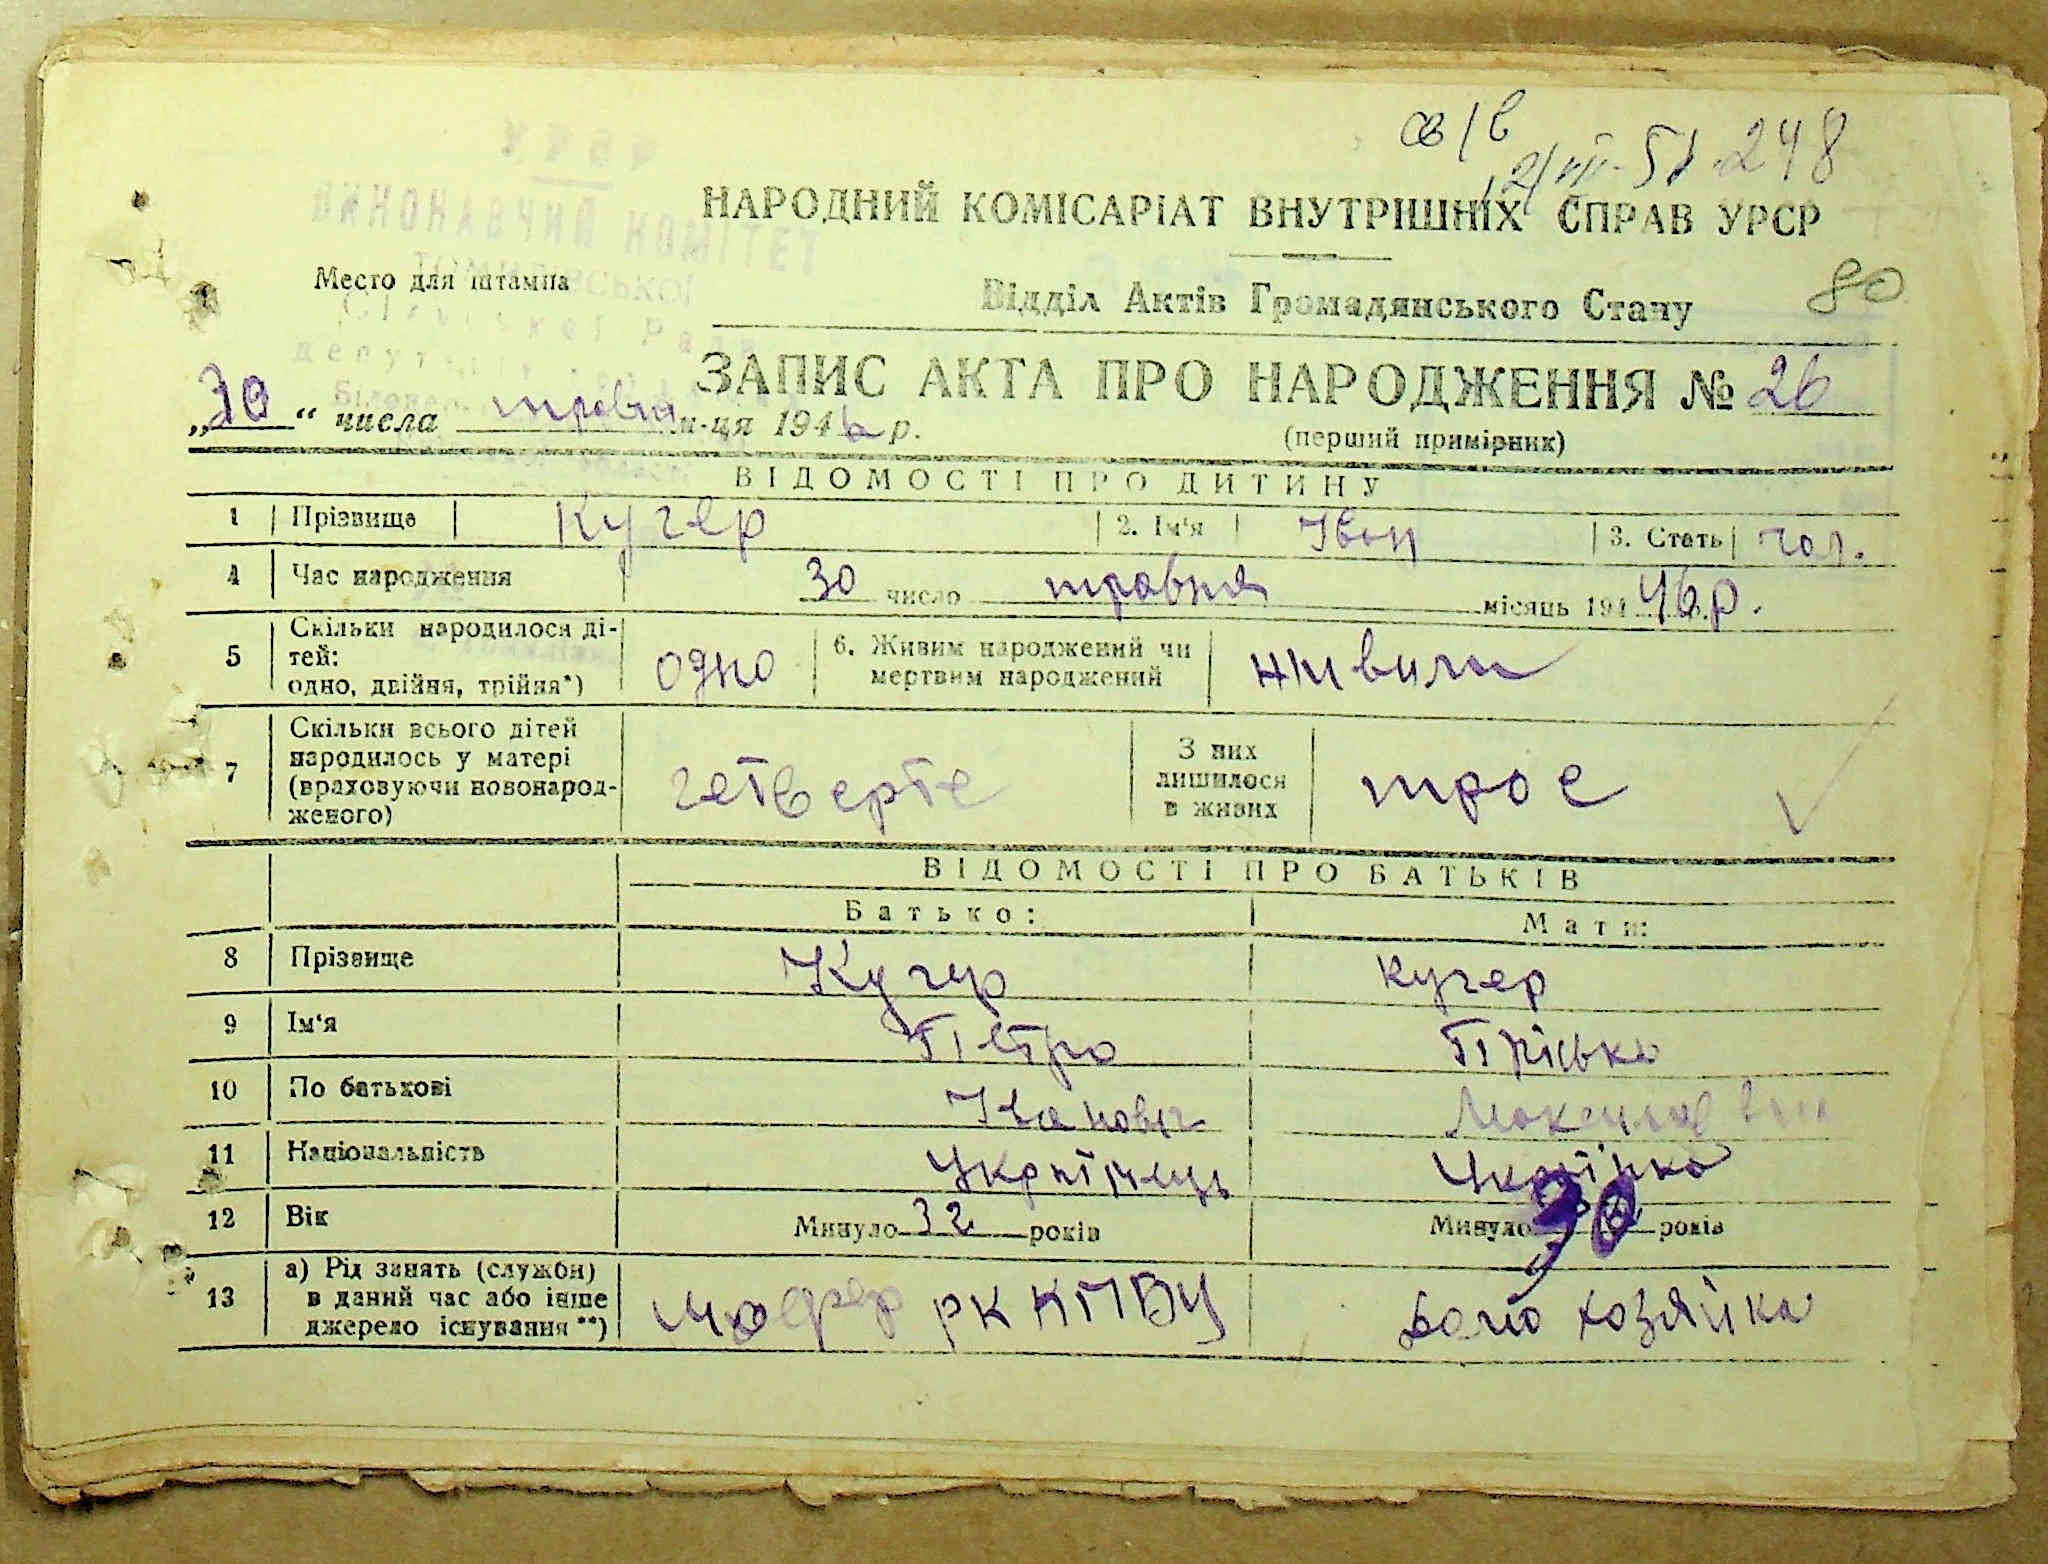 св/в
21/VII-51 248
НАРОДНИЙ КОМІСАРІАТ ВНУТРІШНІХ СПРАВ УРСР
УРСР
ВИКОНАВЧИЙ КОМІТЕТ
Место для штампа
Відділ Актів Громадянського Стану
80
ЗАПИС АКТА ПРО НАРОДЖЕННЯ № 26
„30“ числа травня м-ця 1946 р.
(перший примірник)
ВІДОМОСТІ ПРО ДИТИНУ
1 Прізвище Кучер 2. Ім'я Іван 3. Стать чол.
4 Час народження 30 число травня місяць 194 46 р.
5 Скільки народилося ді-
тей:
одно, двійня, трійня*) одно 6. Живим народжений чи
мертвим народжений живим
7 Скільки всього дітей
народилось у матері
(враховуючи новонарод-
женого) четверте З них
лишилося
в живих трое
ВІДОМОСТІ ПРО БАТЬКІВ
Батько: Мати:
8 Прізвище Кучер Кучер
9 Ім'я Петро Пріська
10 По батькові Іванович
11 Національність Українець Українка
12 Вік Минуло 32 років Минуло 30 років
13 а) Рід занять (служби)
в даний час або інше
джерело існування**) шофер РК КПБУ домо хозяйка